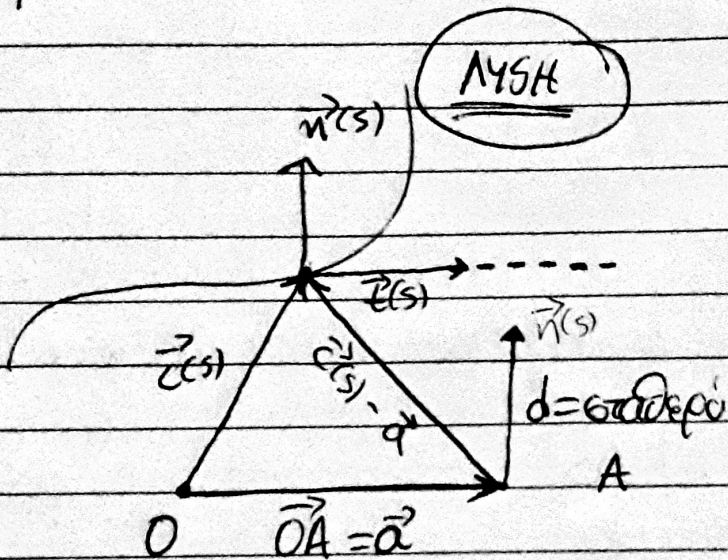 ΛΥΣΗ
n⃗(s)
t⃗(s)
c⃗(s)
c⃗(s) - a⃗
n⃗(s)
d = σταθερό
A
O
O⃗A = a⃗